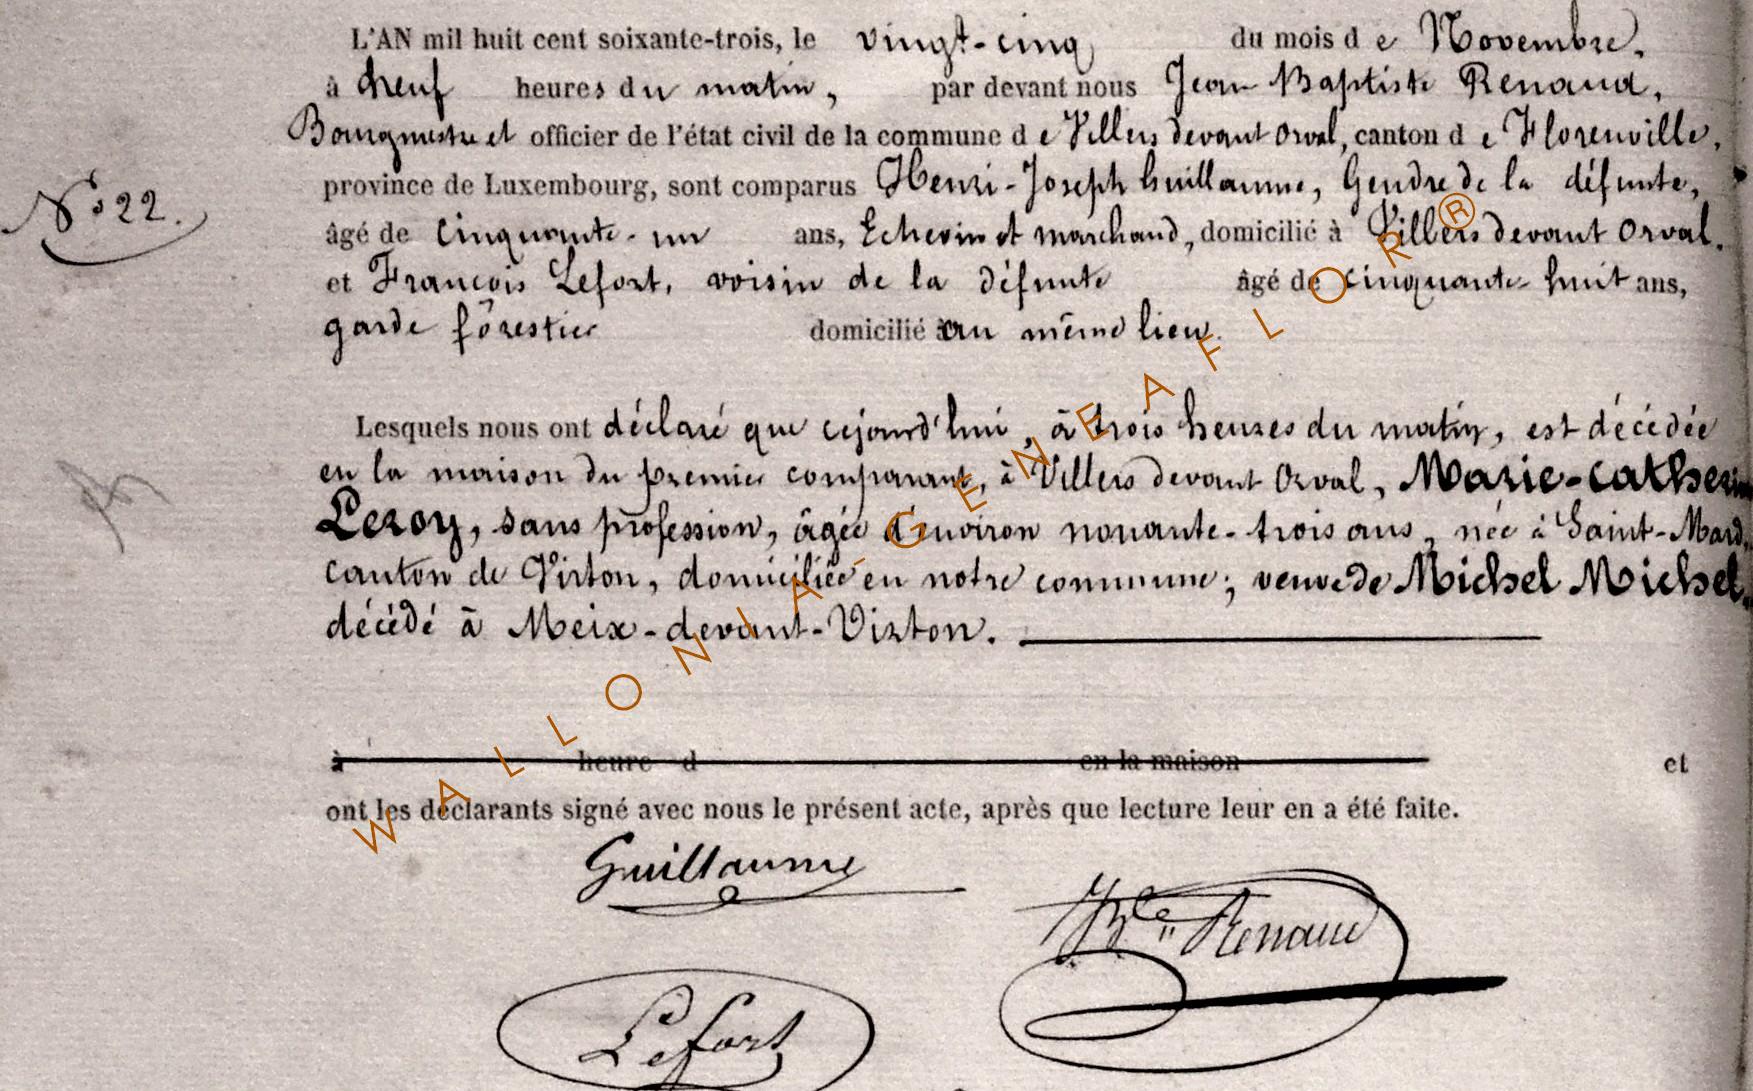 L'AN mil huit cent soixante-trois, le vingt-cinq du mois de Novembre,
à neuf heures du matin, par devant nous Jean Baptiste Renaud,
Bourgmestre et officier de l'état civil de la commune de Villers devant Orval, canton de Florenville,
province de Luxembourg, sont comparus Henri-Joseph Guillaume, Gendre de la défunte,
N° 22.
âgé de Cinquante-un ans, Echevin et marchand, domicilié à Villers devant Orval.
et François Lefort, voisin de la défunte âgé de cinquante-huit ans,
garde forestier domicilié au même lieu.
Lesquels nous ont déclaré que cejourd'hui, à trois heures du matin, est décédée
en la maison du premier comparant, à Villers devant Orval, Marie-Catherine
Leroy, sans profession, âgée d'environ nonante-trois ans, née à Saint-Mard,
canton de Virton, domiciliée en notre commune; veuve de Michel Michel,
décédé à Meix-devant-Virton.
à heure d en la maison et
ont les déclarants signé avec nous le présent acte, après que lecture leur en a été faite.
Guillaume
JBte Renaud
Lefort
WALLONIA-GENEAFLOR®